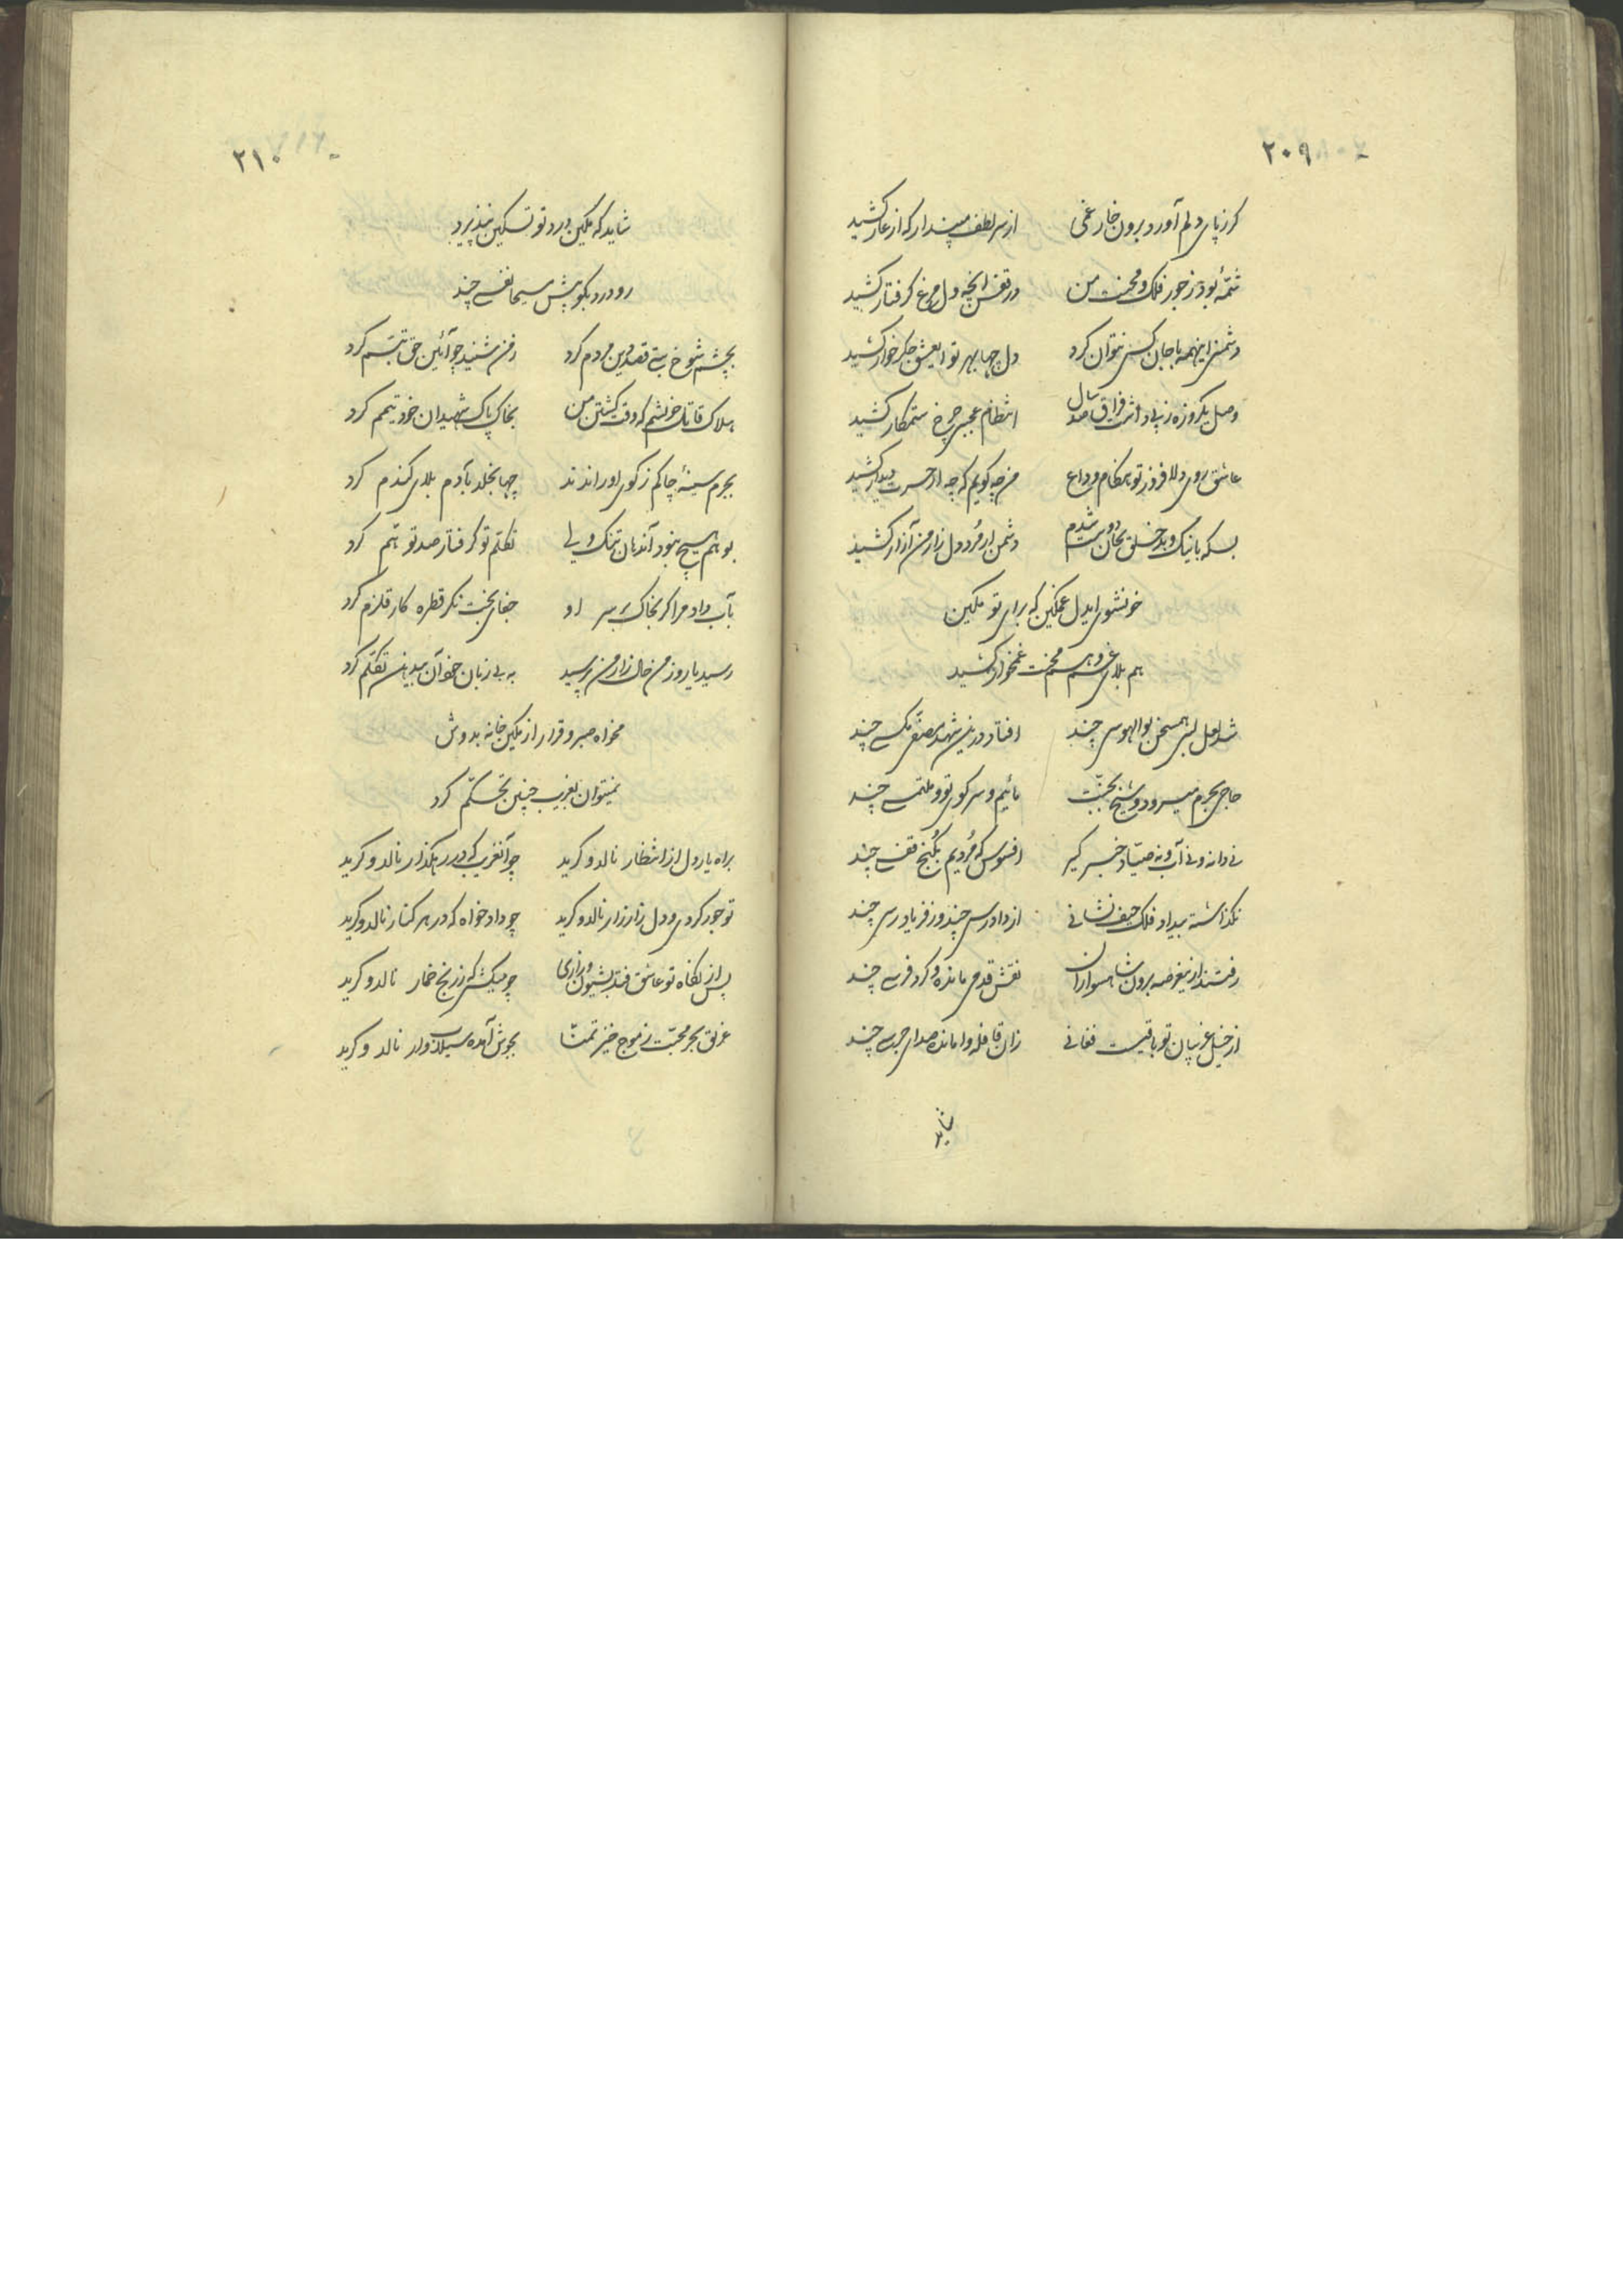 ۲۰۹
کر ز پای دلم آورد برون خار غمی از سر لطف مپندار که از عار کشید
شمّهٔ بود ز جور فلک و محنت من در قفس آنچه دل مرغ گرفتار کشید
دشمنی اینهمه با جان کسی نتوان کرد دل چها بهر تو ای عشق جکرخوار کشید
وصل یکروزه ز پی داشت فراق صد سال انتظام عجبی چرخ ستمکار کشید
عاشق روی دلافروز تو هنکام وداع من چه کویم که چه از حسرت دیدار کشید
بسکه با نیک و بد خلق بجان دوست شدم دشمن ار مُرد دل زار من آزار کشید
خونشوی ایدل غمکین که برای تو مکین
هم بلای غم و هم محنت غمخوار کشید
شد لعل لبش همسخن بوالهوسی چند افتاد درین شهد مصفّی مکسی چند
حاجی بحرم میرود و شیخ بجنّت مائیم و سر کوی تو و ملتمسی چند
نی دانه و نی آب و نه صیّاد خبر کیر افسوس که مُردیم بکُنج قفسی چند
نکذاشته بیداد فلک حیف نشانی از دادرسی چند و ز فریادرسی چند
رفتند ازین عرصه برون شاهسواران نقش قدمی مانده و کرد فرسی چند
از خیل غریبان تو باقیست فغانی زان قافله وامانده صدای جرسی چند
شاید
۲۱۰
شاید که مکین درد تو تسکین نپذیرد
رو درد بکو پیش مسیحا نفسی چند
بچشم شوخ بتی قصد دین مردم کرد ز من شنید چو آئین حق تبسّم کرد
هلاک قاتل خویشم که وقت کشتن من بخاک پاک شهیدان خود تیمّم کرد
بجرم سینهٔ چاکم ز کوی او راندند چها بخلد بآدم بلای کندم کرد
بو هم هیچ نبود آندهان تنک ولی تکلّم تو گرفتار صد توهّم کرد
بآب داد مرا کریه خاک بر سر او جفای بخت نکر قطره کار قلزم کرد
رسید یار و ز من حال زار من پرسید به بی زبان خود آن بیدهن تکلّم کرد
مخواه صبر و قرار از مکین خانه بدوش
نمیتوان بغریب چنین تحکّم کرد
براه یار دل از انتظار نالد و کرید چو آنغریب که در رهکذار نالد و کرید
تو جور کردی و دل زار زار نالد و کرید چو دادخواه که در هر کنار نالد و کرید
پس از نکاه تو عاشق فتد بشیون و زاری چو میکشی که ز رنج خمار نالد و کرید
غریق بحر محبّت ز موج خیز تمنّا بجوش آمده سیلاب وار نالد و کرید